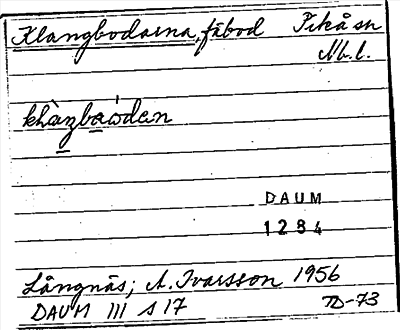 Klangbodarna, fäbod Piteå sn
Nb.l.
khàzbaòdan
DAUM
1284
Långnäs; A. Ivarsson 1956
DAUM III s 17 TD-73